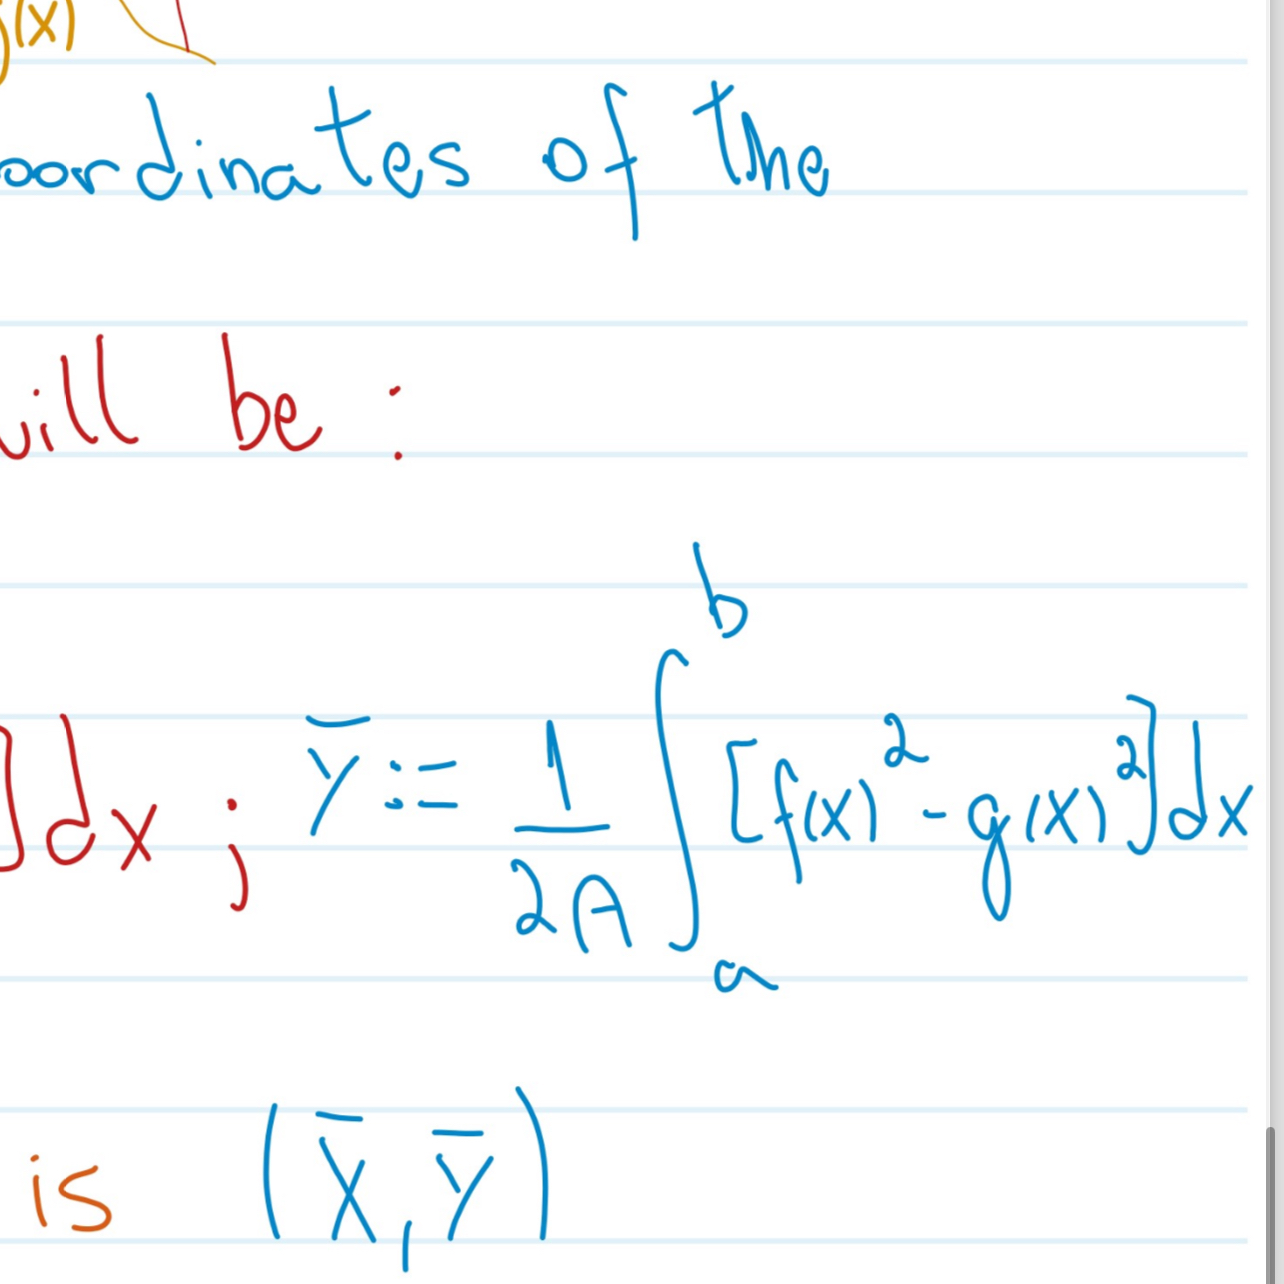 g(x)
oordinates of the
will be :
] dx ; ȳ := 1/2A ∫ₐᵇ [f(x)² - g(x)²] dx
is (x̄, ȳ)